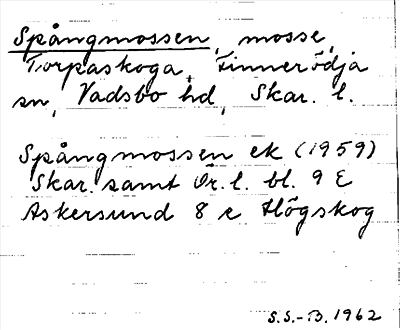 Spångmossen, mosse,
Torpaskoga, Finnerödja
sn, Vadsbo hd, Skar. l.
Spångmossen ek (1959)
Skar. samt Ör. l. bl. 9 E
Askersund 8 e Högskog
S.S.-B. 1962